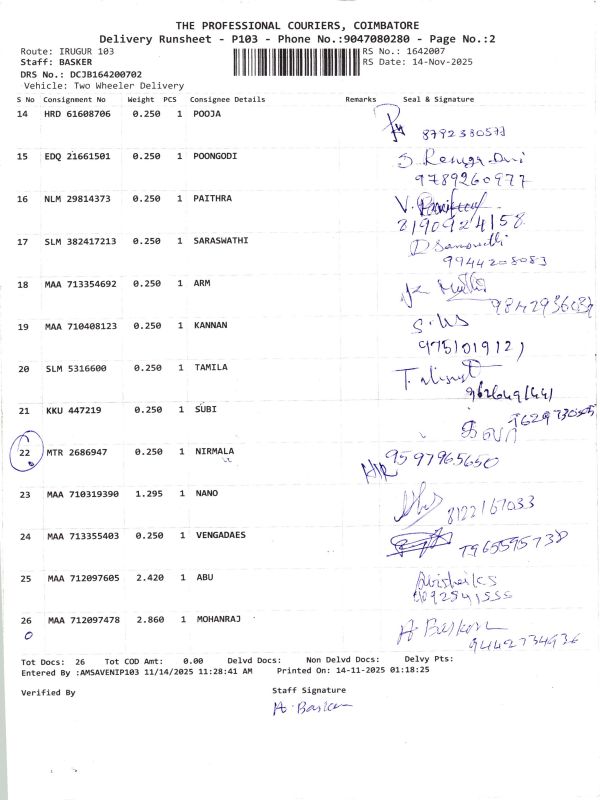 THE PROFESSIONAL COURIERS, COIMBATORE
Delivery Runsheet - P103 - Phone No.:9047080280 - Page No.:2
Route: IRUGUR 103 RS No.: 1642007
Staff: BASKER RS Date: 14-Nov-2025
DRS No.: DCJB164200702
Vehicle: Two Wheeler Delivery
S No Consignment No Weight PCS Consignee Details Remarks Seal & Signature
14 HRD 61608706 0.250 1 POOJA
15 EDQ 21661501 0.250 1 POONGODI
9789260977
16 NLM 29814373 0.250 1 PAITHRA V.
8190924158
17 SLM 382417213 0.250 1 SARASWATHI
9944208083
18 MAA 713354692 0.250 1 ARM
19 MAA 710408123 0.250 1 KANNAN
9751019121
20 SLM 5316600 0.250 1 TAMILA
21 KKU 447219 0.250 1 SUBI
22 MTR 2686947 0.250 1 NIRMALA 9597965650
23 MAA 710319390 1.295 1 NANO 8122167033
24 MAA 713355403 0.250 1 VENGADAES
25 MAA 712097605 2.420 1 ABU
26 MAA 712097478 2.860 1 MOHANRAJ A Baskar
9442734936
Tot Docs: 26 Tot COD Amt: 0.00 Delvd Docs: Non Delvd Docs: Delvy Pts:
Entered By :AMSAVENIP103 11/14/2025 11:28:41 AM Printed On: 14-11-2025 01:18:25
Verified By Staff Signature
A. Baskar